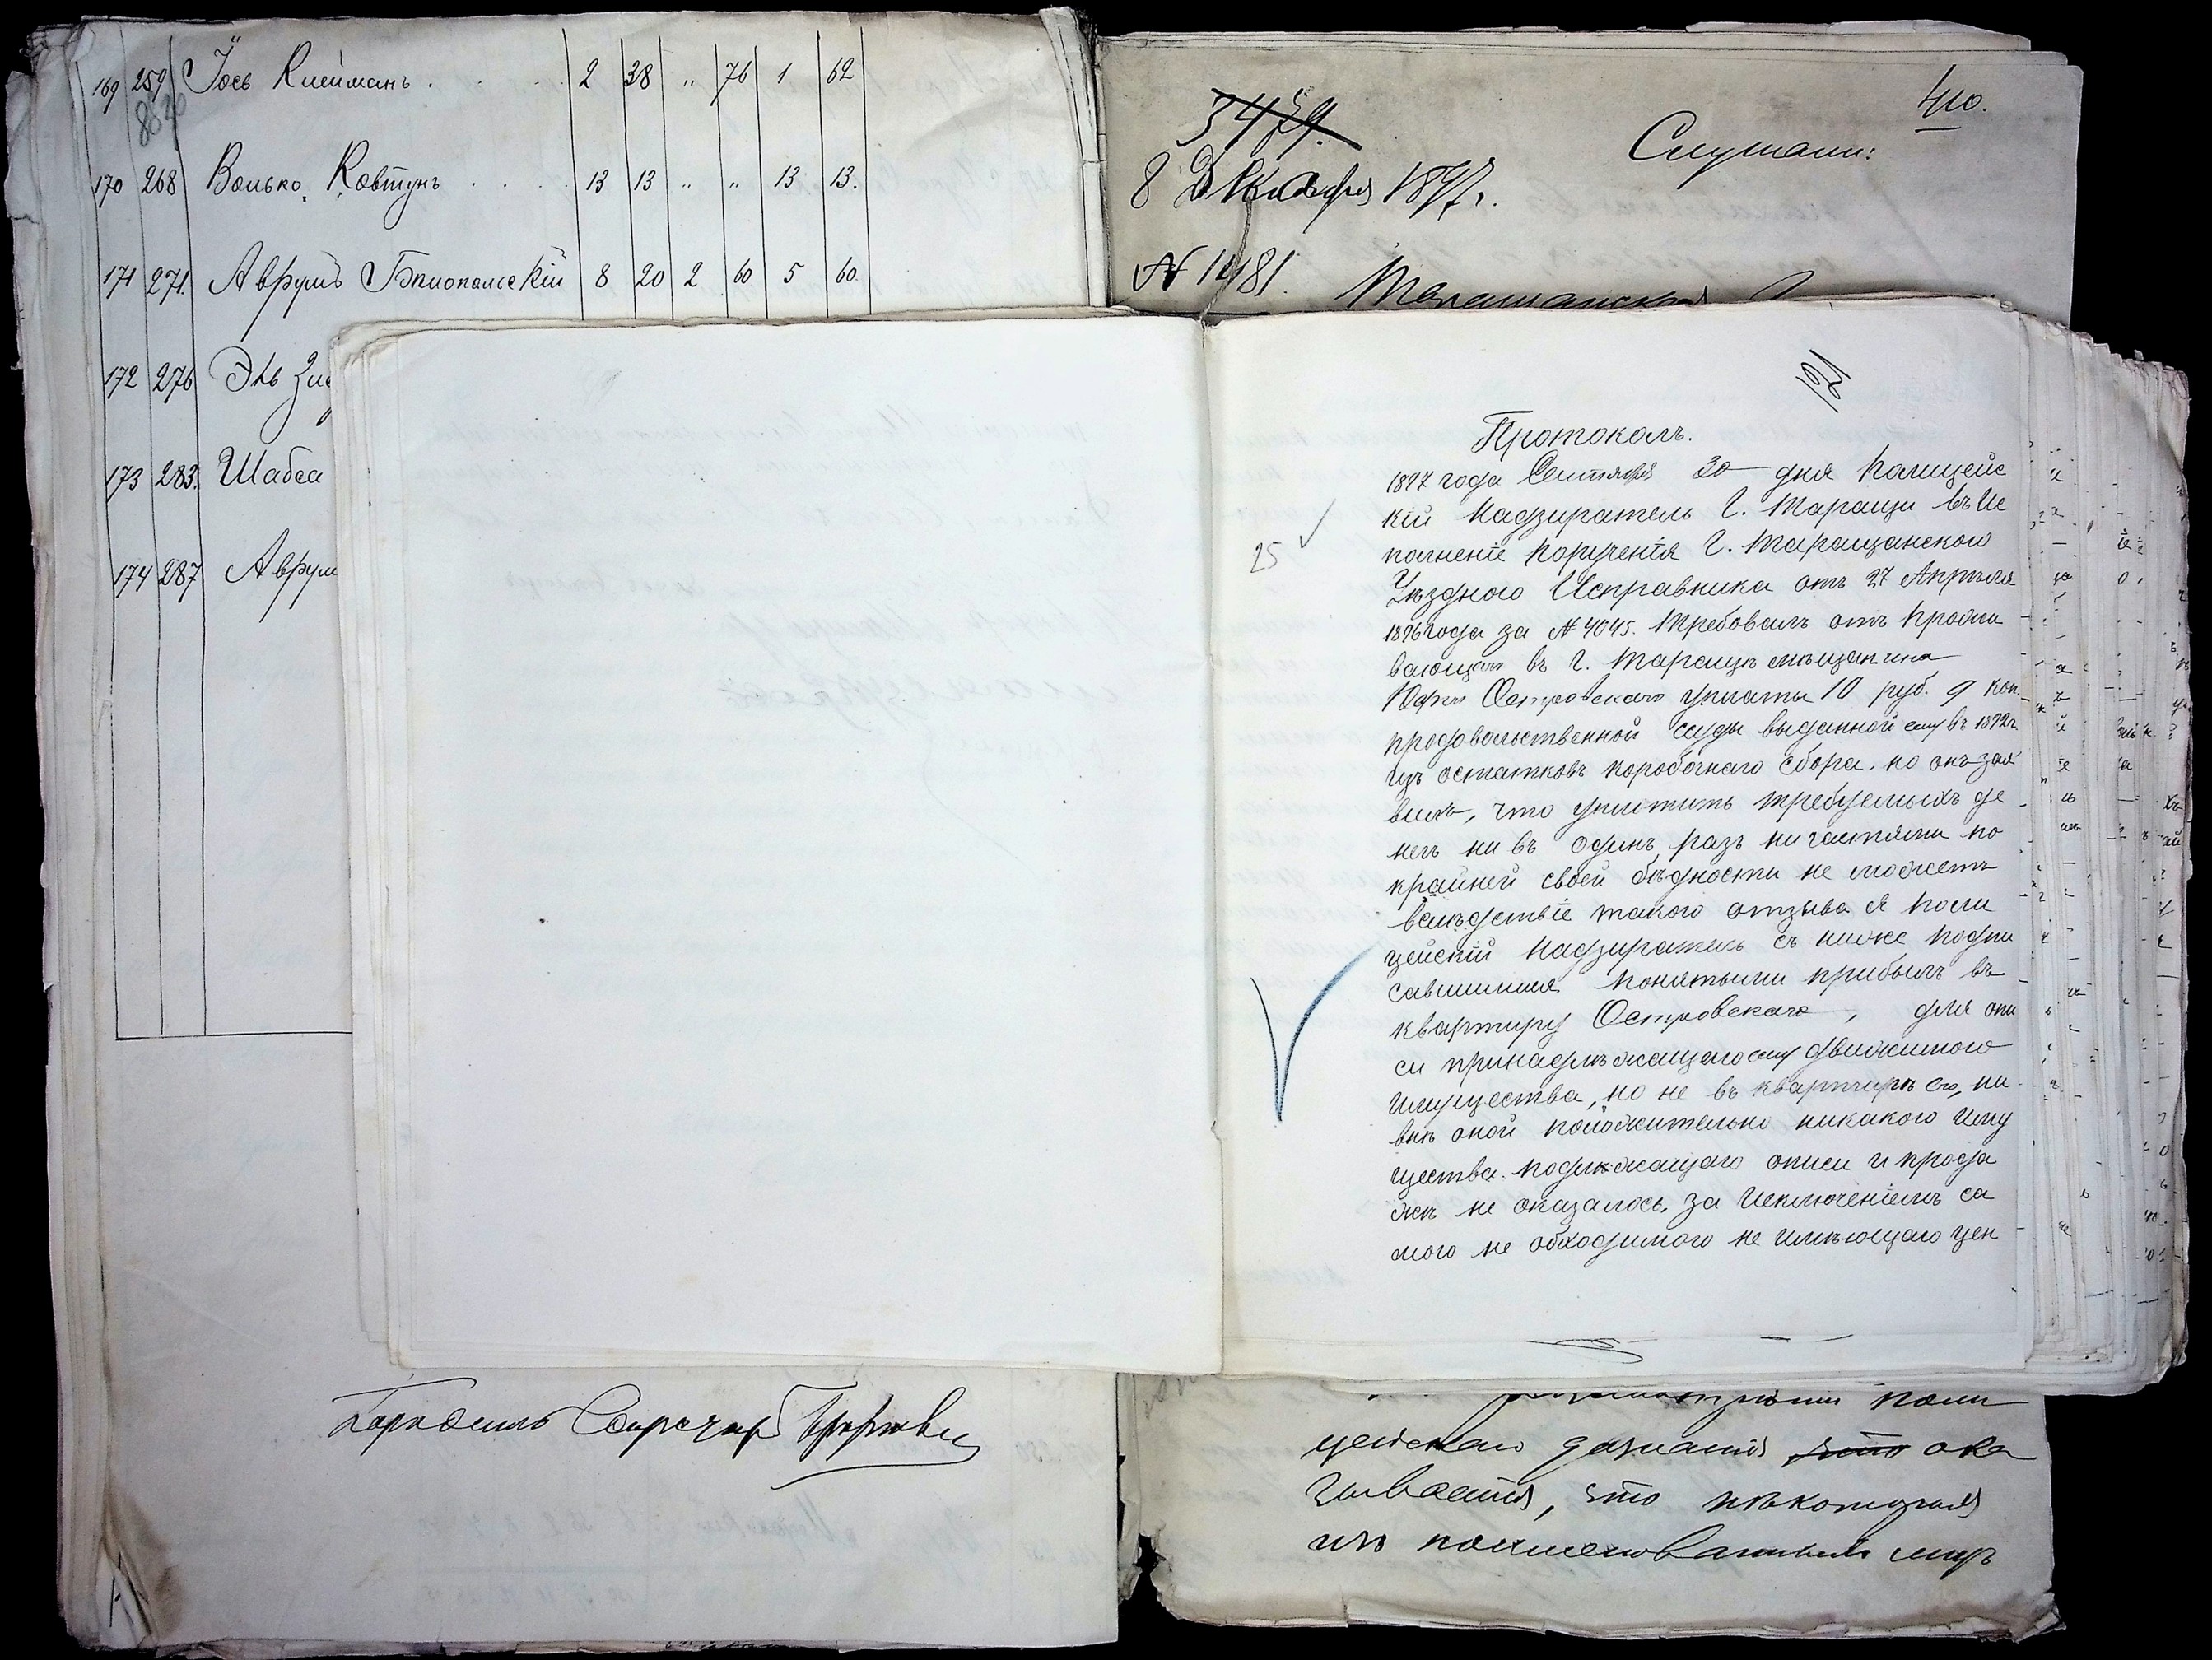 169 259 Іось Клейманъ . . . 2 38 „ 76 1 62
170 268 Волько Ковтунъ . . . . 13 13 „ „ 13 13.
171 271. Аврумъ Бѣлопольскій 8 20 2 60 5 60.
172 276 Эль
173 283. Шабса
174 287 Аврум
410.
3479.
Слушали:
8 Декабря 1897 г.
№ 1481.
Таращанская
121
Протоколъ.
1897 года Сентября 30 дня Полицейс
кій Надзиратель Г. Таращи въ Ис
полненіе порученія Г. Таращанского
Уѣздного Исправника отъ 27 Апрѣля
1896 года за № 4045. требовалъ отъ прожи
вающаго въ Г. Таращѣ мѣщанина
Островскаго уплаты 10 руб. 9 коп.
продовольственной ссуды выданной ему въ 1892 г.
изъ остатковъ коробочнаго сбора, но онъ зая
вилъ, что уплатить требуемыхъ де
негъ ни въ одинъ разъ ни частями по
крайней своей бѣдности не можетъ
вслѣдствіе такого отзыва я поли
цейскій Надзиратель съ ниже подпи
савшимися понятыми прибылъ въ
квартиру Островскаго, для опи
си принадлѣжащего ему движимого
имущества, но не въ квартирѣ его, ни
внѣ оной положительно никакого иму
щества. подлѣжащаго описи и прода
жѣ не оказалось, за исключеніемъ са
мого не обходимого не имѣющаго цен
25
поли
цейскаго дознанія что ока
зывается, что нѣкоторыя
изъ поименованныхъ лицъ